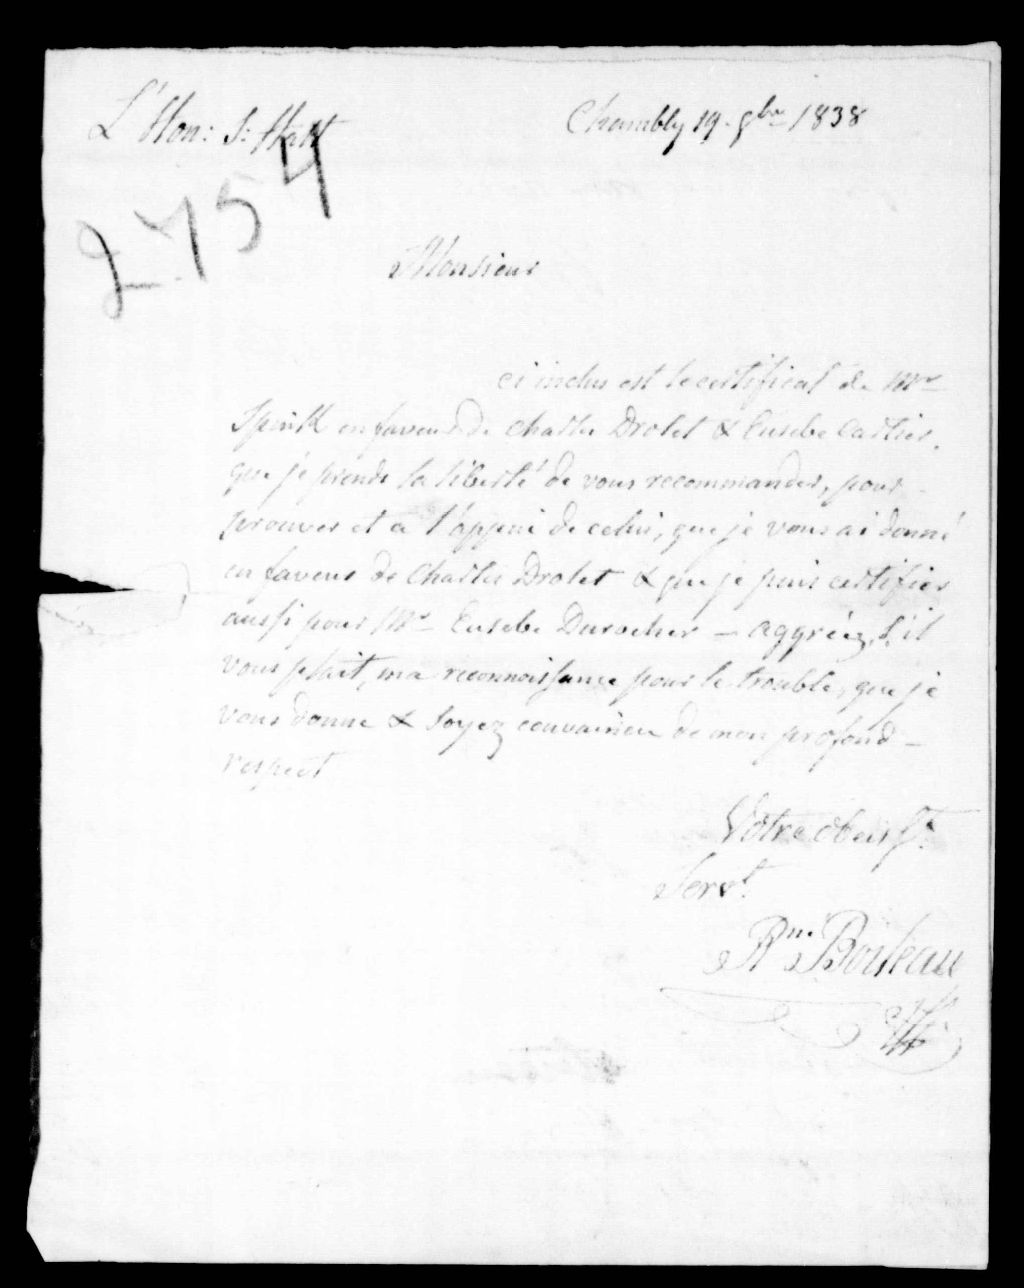 L'Hon: S: Hatt
Chambly 19 - 9bre 1838
2754
Monsieur
ci inclus est le certificat de Mr
en faveur de Charles Drolet & Eusebe Cartier,
que je prends la liberté de vous recommander, pour
prouver et a l'appui de celui, que je vous ai donné
en faveur de Charles Drolet & que je puis certifier
aussi pour Mr Eusebe Durocher - aggréez, s'il
vous plait, ma reconnoissance pour le trouble, que je
vous donne & soyez convaincu de mon profond
respect
Votre obeisst.
Servt.
Rn. Boileau